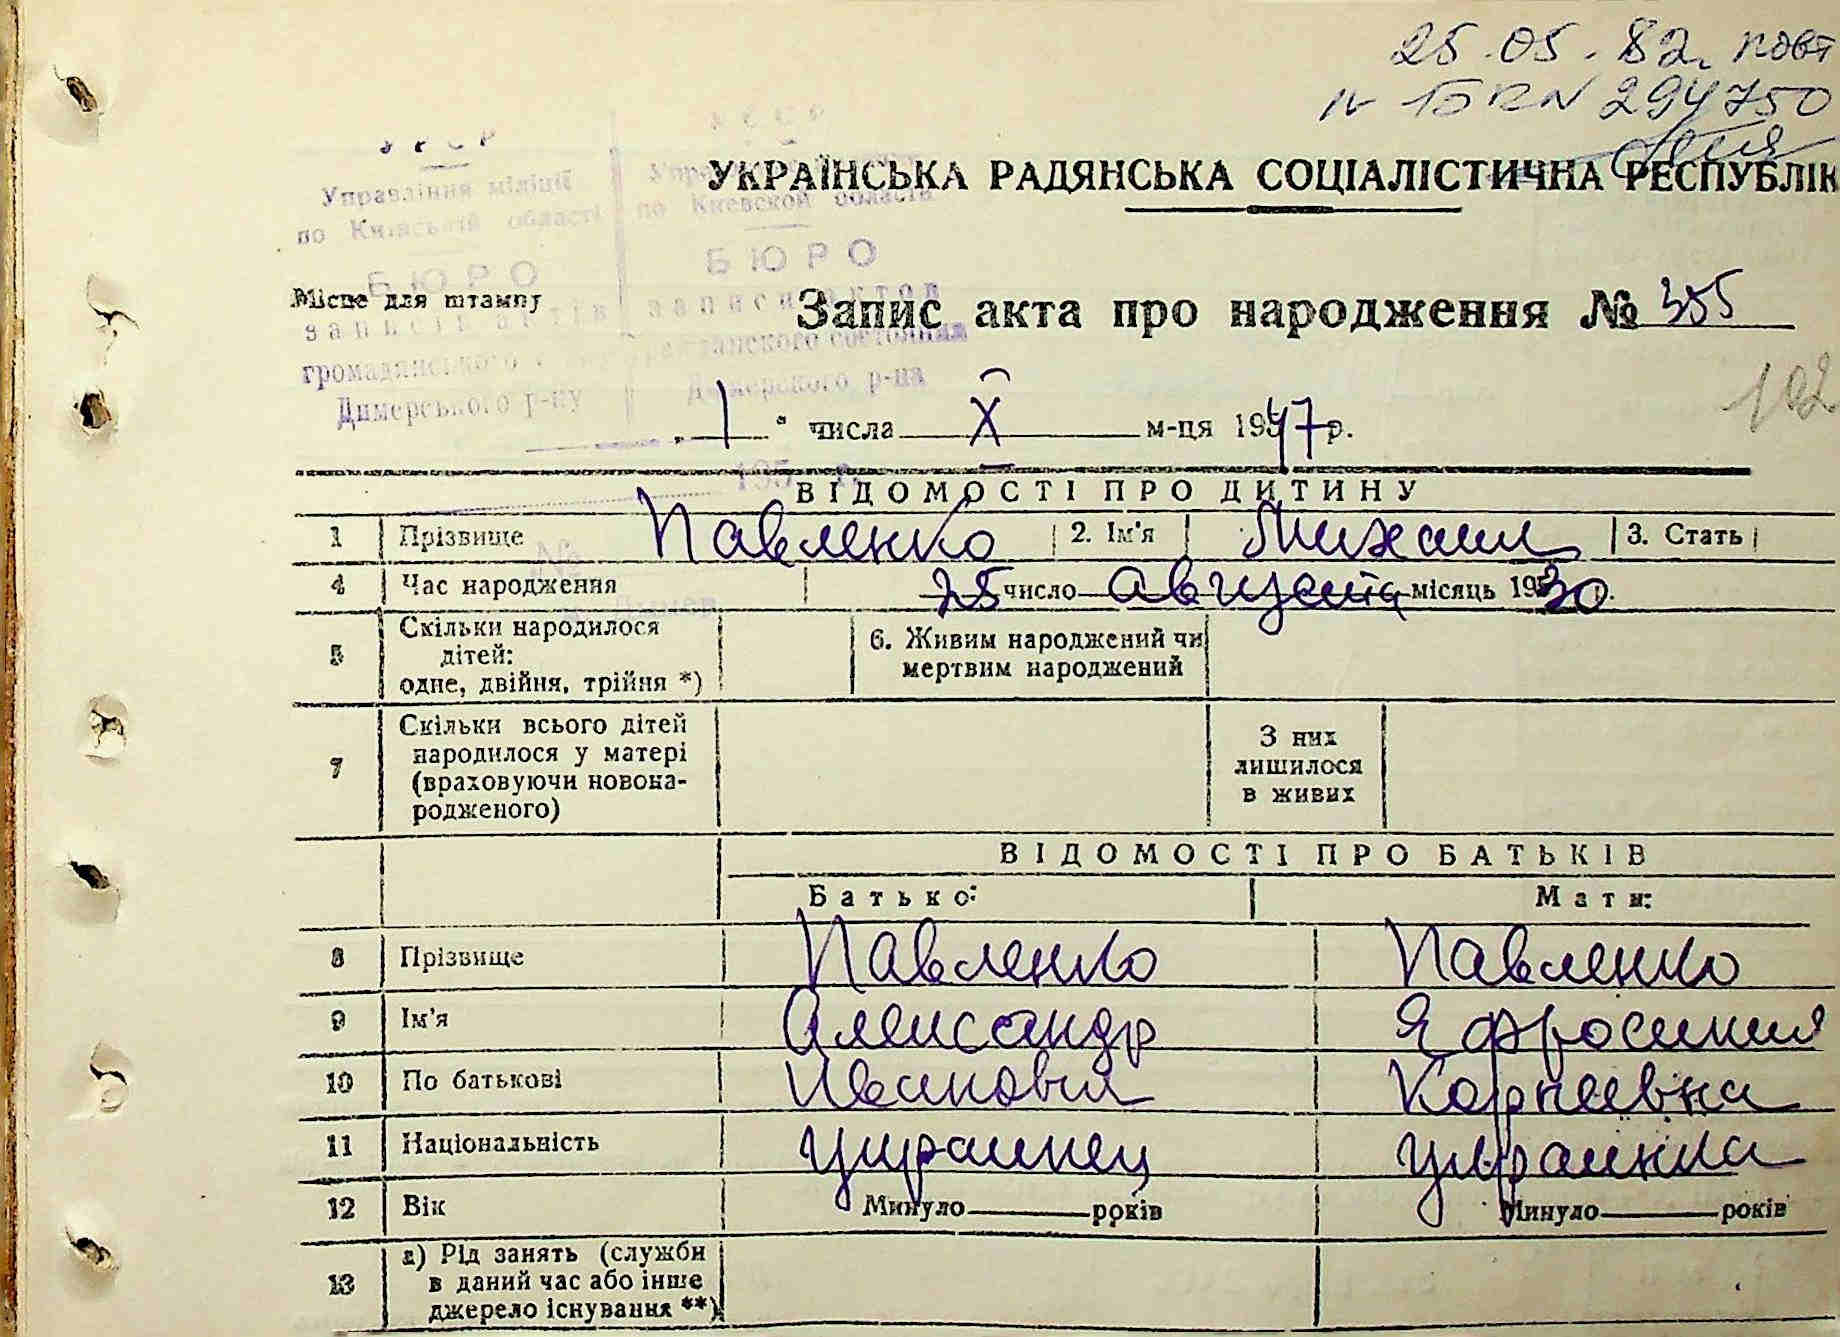 25.05.82. повт
IV БК N 294750
УКРАЇНСЬКА РАДЯНСЬКА СОЦІАЛІСТИЧНА РЕСПУБЛІК
УРСР
Управління міліції
по Київській області
БЮРО
записів актів
громадянського
Димерського р-ну
СССР
по Киевской области
БЮРО
записи актов
гражданского состояния
Димерского р-на
195 г.
№
Місце для штампу
Запис акта про народження № 355
102
„ 1 " числа X м-ця 1947 р.
ВІДОМОСТІ ПРО ДИТИНУ
1 Прізвище Павленко 2. Ім'я Михаил 3. Стать
4 Час народження 25 число августа місяць 1930 р.
5 Скільки народилося
дітей:
одне, двійня, трійня *)
6. Живим народжений чи
мертвим народжений
7 Скільки всього дітей
народилося у матері
(враховуючи новона-
родженого)
З них
лишилося
в живих
ВІДОМОСТІ ПРО БАТЬКІВ
Батько: Мати:
8 Прізвище Павленко Павленко
9 Ім'я Александр Яфросиния
10 По батькові Иванович Корнеевна
11 Національність украинец украинка
12 Вік Минуло років Минуло років
13 а) Рід занять (служби
в даний час або інше
джерело існування **)